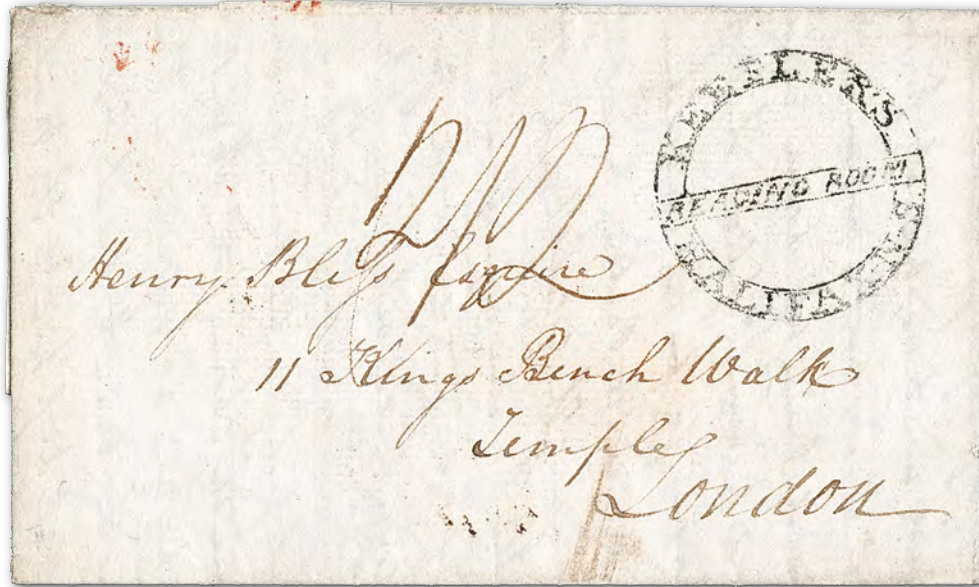 KEEFLER'S
READING ROOM
HALIFAX. N.S.
Henry Bliss Esquire
11 Kings Bench Walk
Temple
London